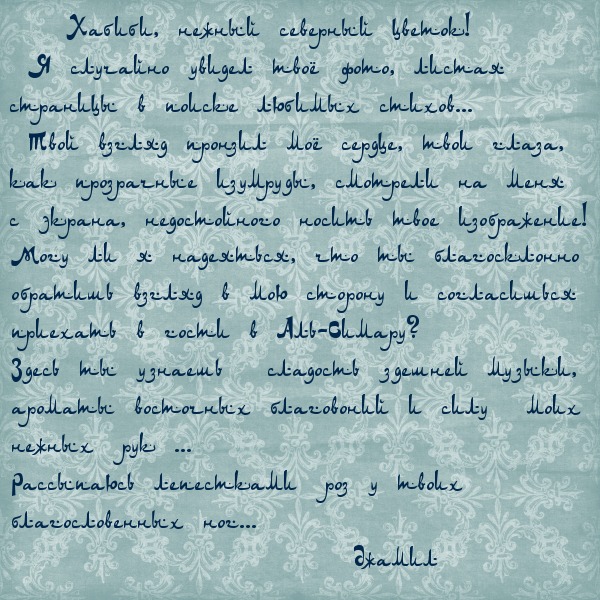 Хабиби, нежный северный цветок!
Я случайно увидел твоё фото, листая
страницы в поиске любимых стихов...
Твой взгляд пронзил моё сердце, твои глаза,
как прозрачные изумруды, смотрели на меня
с экрана, недостойного носить твое изображение!
Могу ли я надеяться, что ты благосклонно
обратишь взгляд в мою сторону и согласишься
приехать в гости в Аль-Симару?
Здесь ты узнаешь сладость здешней музыки,
ароматы восточных благовоний и силу моих
нежных рук ...
Рассыпаюсь лепестками роз у твоих
благословенных ног...
Джамил